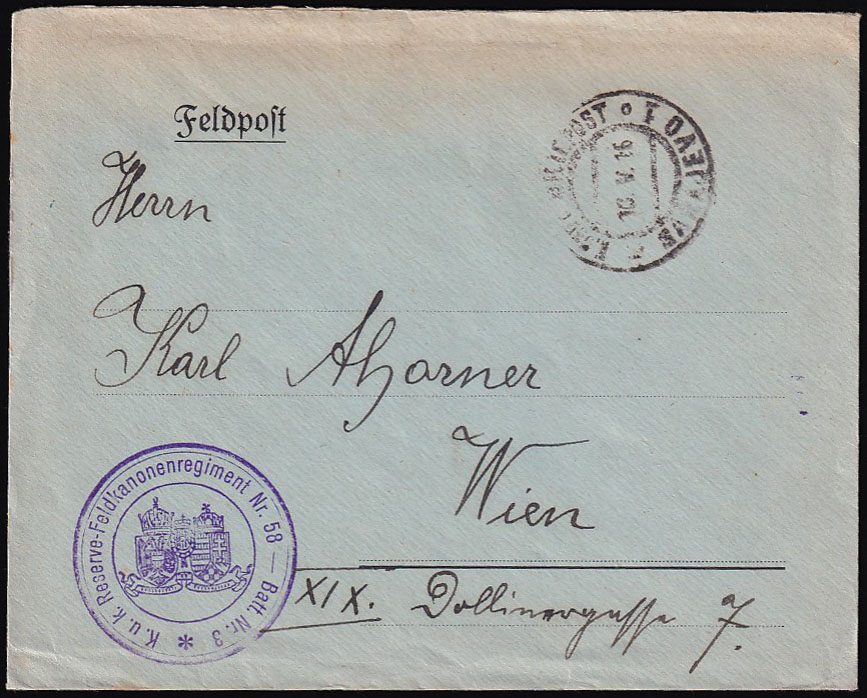 Feldpost
Herrn
Karl Ahorner
Wien
XIX. Dollinergasse 7.
K.u.k. Reserve-Feldkanonenregiment Nr. 58 — Batt. Nr. 3 *
10. V. 16